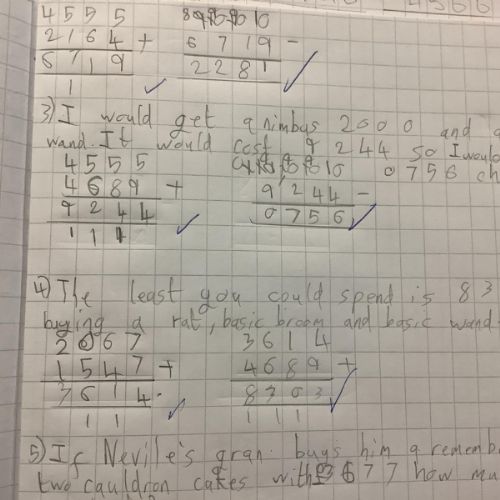 4555
2164 + 6719 -
6719 2281
1
3) I would get a nimbus 2000 and a
wand. It would cost 9244 so I would
4555 0756 ch
4689 + 9,244 -
9244 0756
111
4) The least you could spend is 83
buying a rat, basic broom and basic wand
2067 3614
1547 + 4689 +
3614. 8303
11 111
5) If Nevile's gran buys him a rememb
two cauldron cakes with 3677 how mu